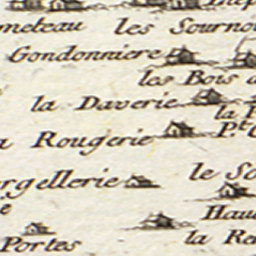 meteau les Sourno
Gondonniere
les Bois d
la Daverie
la P
a Rougerie P.t C
rgellerie le So
e
Hau
Portes la Re